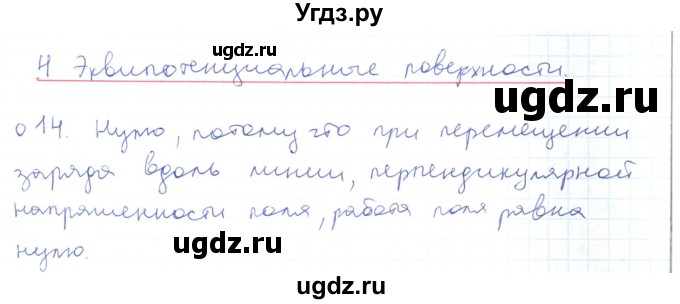 Угдз.ру
ugdz.ru
4 Эквипотенциальные поверхности.
ugdz.ru
ugdz.ru
о14. Нулю, потому что при перемещении
заряда вдоль линии, перпендикулярной
ugdz.ru
напряженности поля, работа поля равна
ugdz.ru
нулю.
ugdz.ru
ugdz.ru